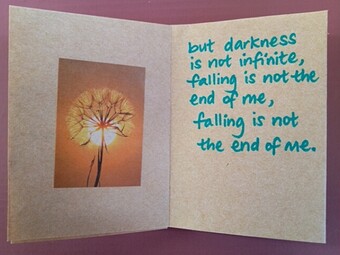 but darkness
is not infinite,
falling is not the
end of me,
falling is not
the end of me.